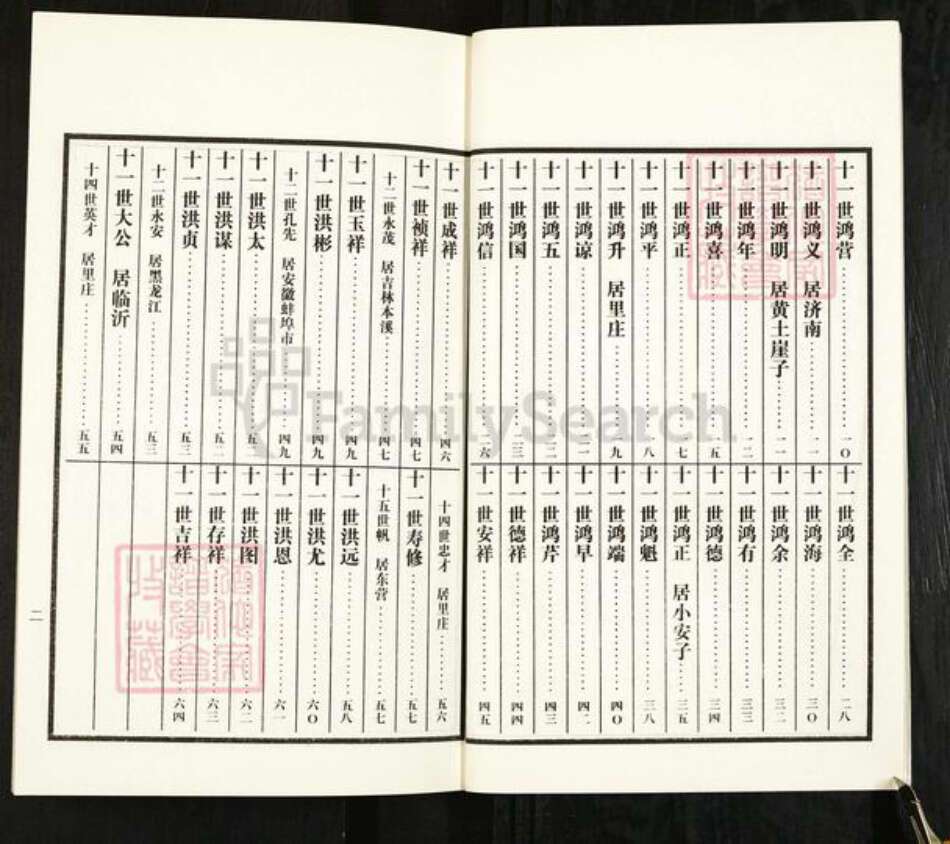 十一世鸿营 一〇
十一世鸿义 居济南
十一世鸿明 居黄土崖子
十一世鸿年
十一世鸿喜
十一世鸿正
十一世鸿平
十一世鸿升 居里庄
十一世鸿谅
十一世鸿五
十一世鸿国
十一世鸿信
十一世鸿全 二八
十一世鸿海 三〇
十一世鸿余
十一世鸿有 三三
十一世鸿德 三四
十一世鸿正 居小安子 三五
十一世鸿魁 三八
十一世鸿端 四〇
十一世鸿早 四二
十一世鸿芹 四三
十一世德祥 四四
十一世安祥 四五
十一世成祥 四六
十一世祯祥 四七
十二世永茂 居吉林本溪 四七
十一世玉祥 四九
十一世洪彬 四九
十二世孔先 居安徽蚌埠市 四九
十一世洪太
十一世洪谋 五二
十一世洪贞 五三
十二世永安 居黑龙江 五三
十一世大公 居临沂 五四
十四世英才 居里庄 五五
十四世忠才 居里庄 五六
十一世寿修 五七
十五世帆 居东营 五七
十一世洪远 五八
十一世洪尤 六〇
十一世洪恩 六一
十一世洪图 六二
十一世存祥 六三
十一世吉祥 六四
二
FamilySearch